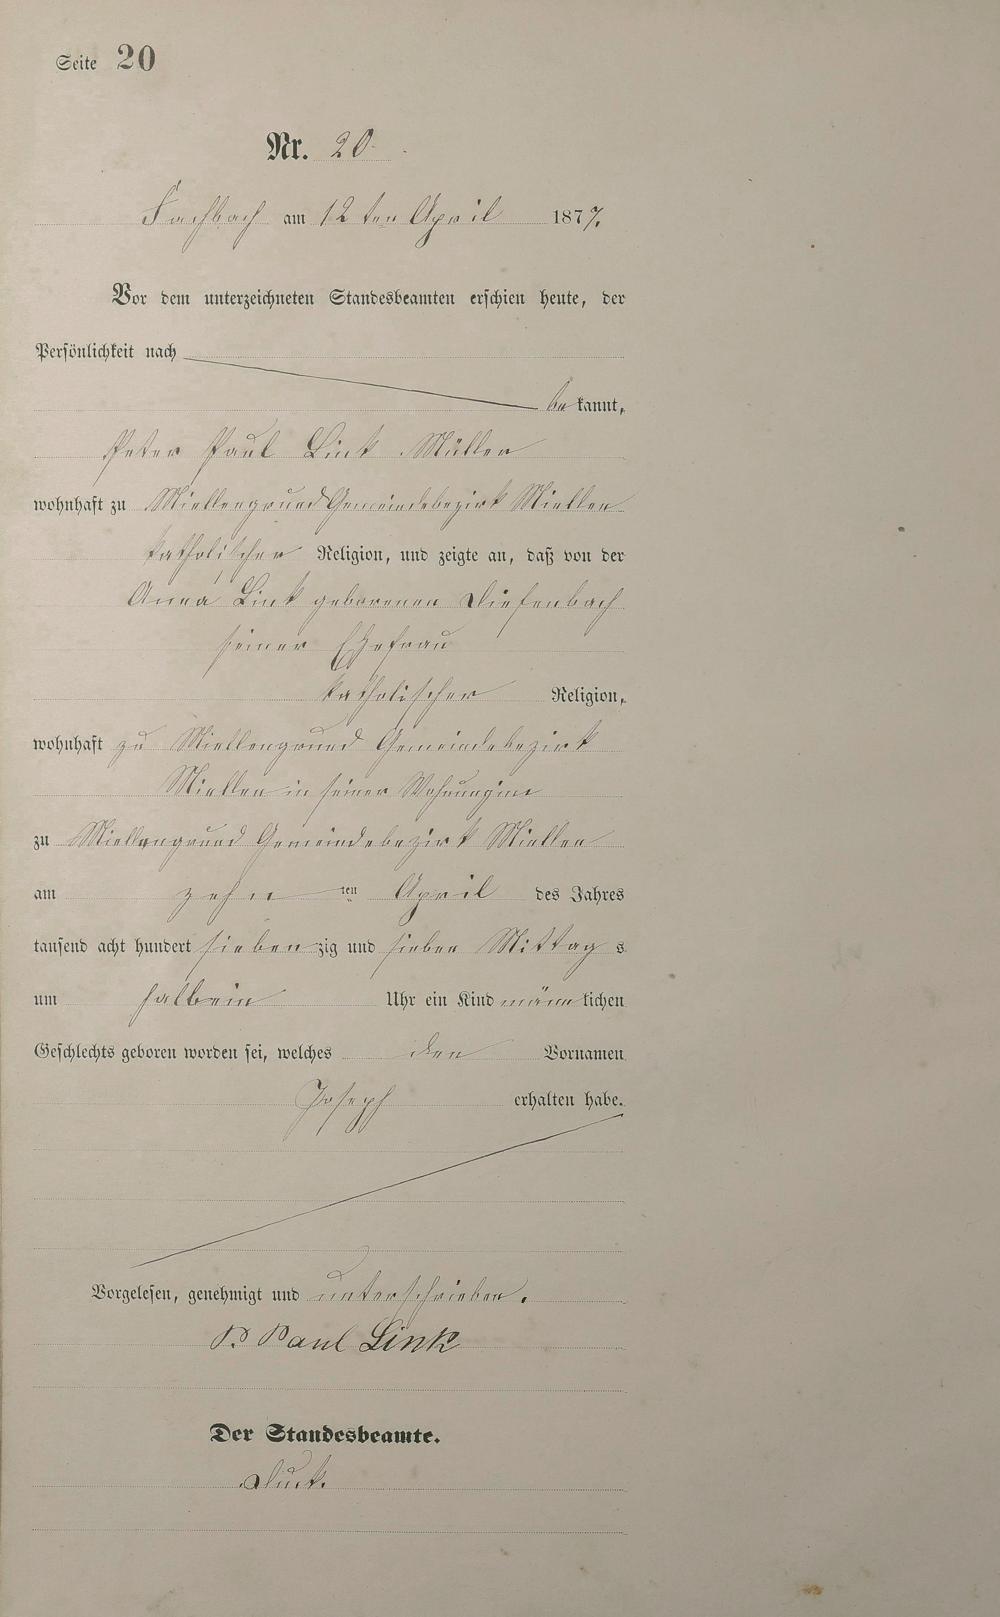 Seite 20
Nr. 20.
Fachbach am 12ten April 1877.
Vor dem unterzeichneten Standesbeamten erschien heute, der
Persönlichkeit nach
bekannt,
Peter Paul Link Müller
wohnhaft zu Miellengrund Gemeindebezirk Miellen
katholischer Religion, und zeigte an, daß von der
Anna Link geborenen Diefenbach
seiner Ehefrau
katholischer Religion,
wohnhaft zu Miellengrund Gemeindebezirk
Miellen in seiner Wohnung im
zu Miellengrund Gemeindebezirk Miellen
am zehn ten April des Jahres
tausend acht hundert siebenzig und sieben Mittags
um halbein Uhr ein Kind männlichen
Geschlechts geboren worden sei, welches den Vornamen
Joseph erhalten habe.
Vorgelesen, genehmigt und unterschrieben.
P. Paul Link
Der Standesbeamte.